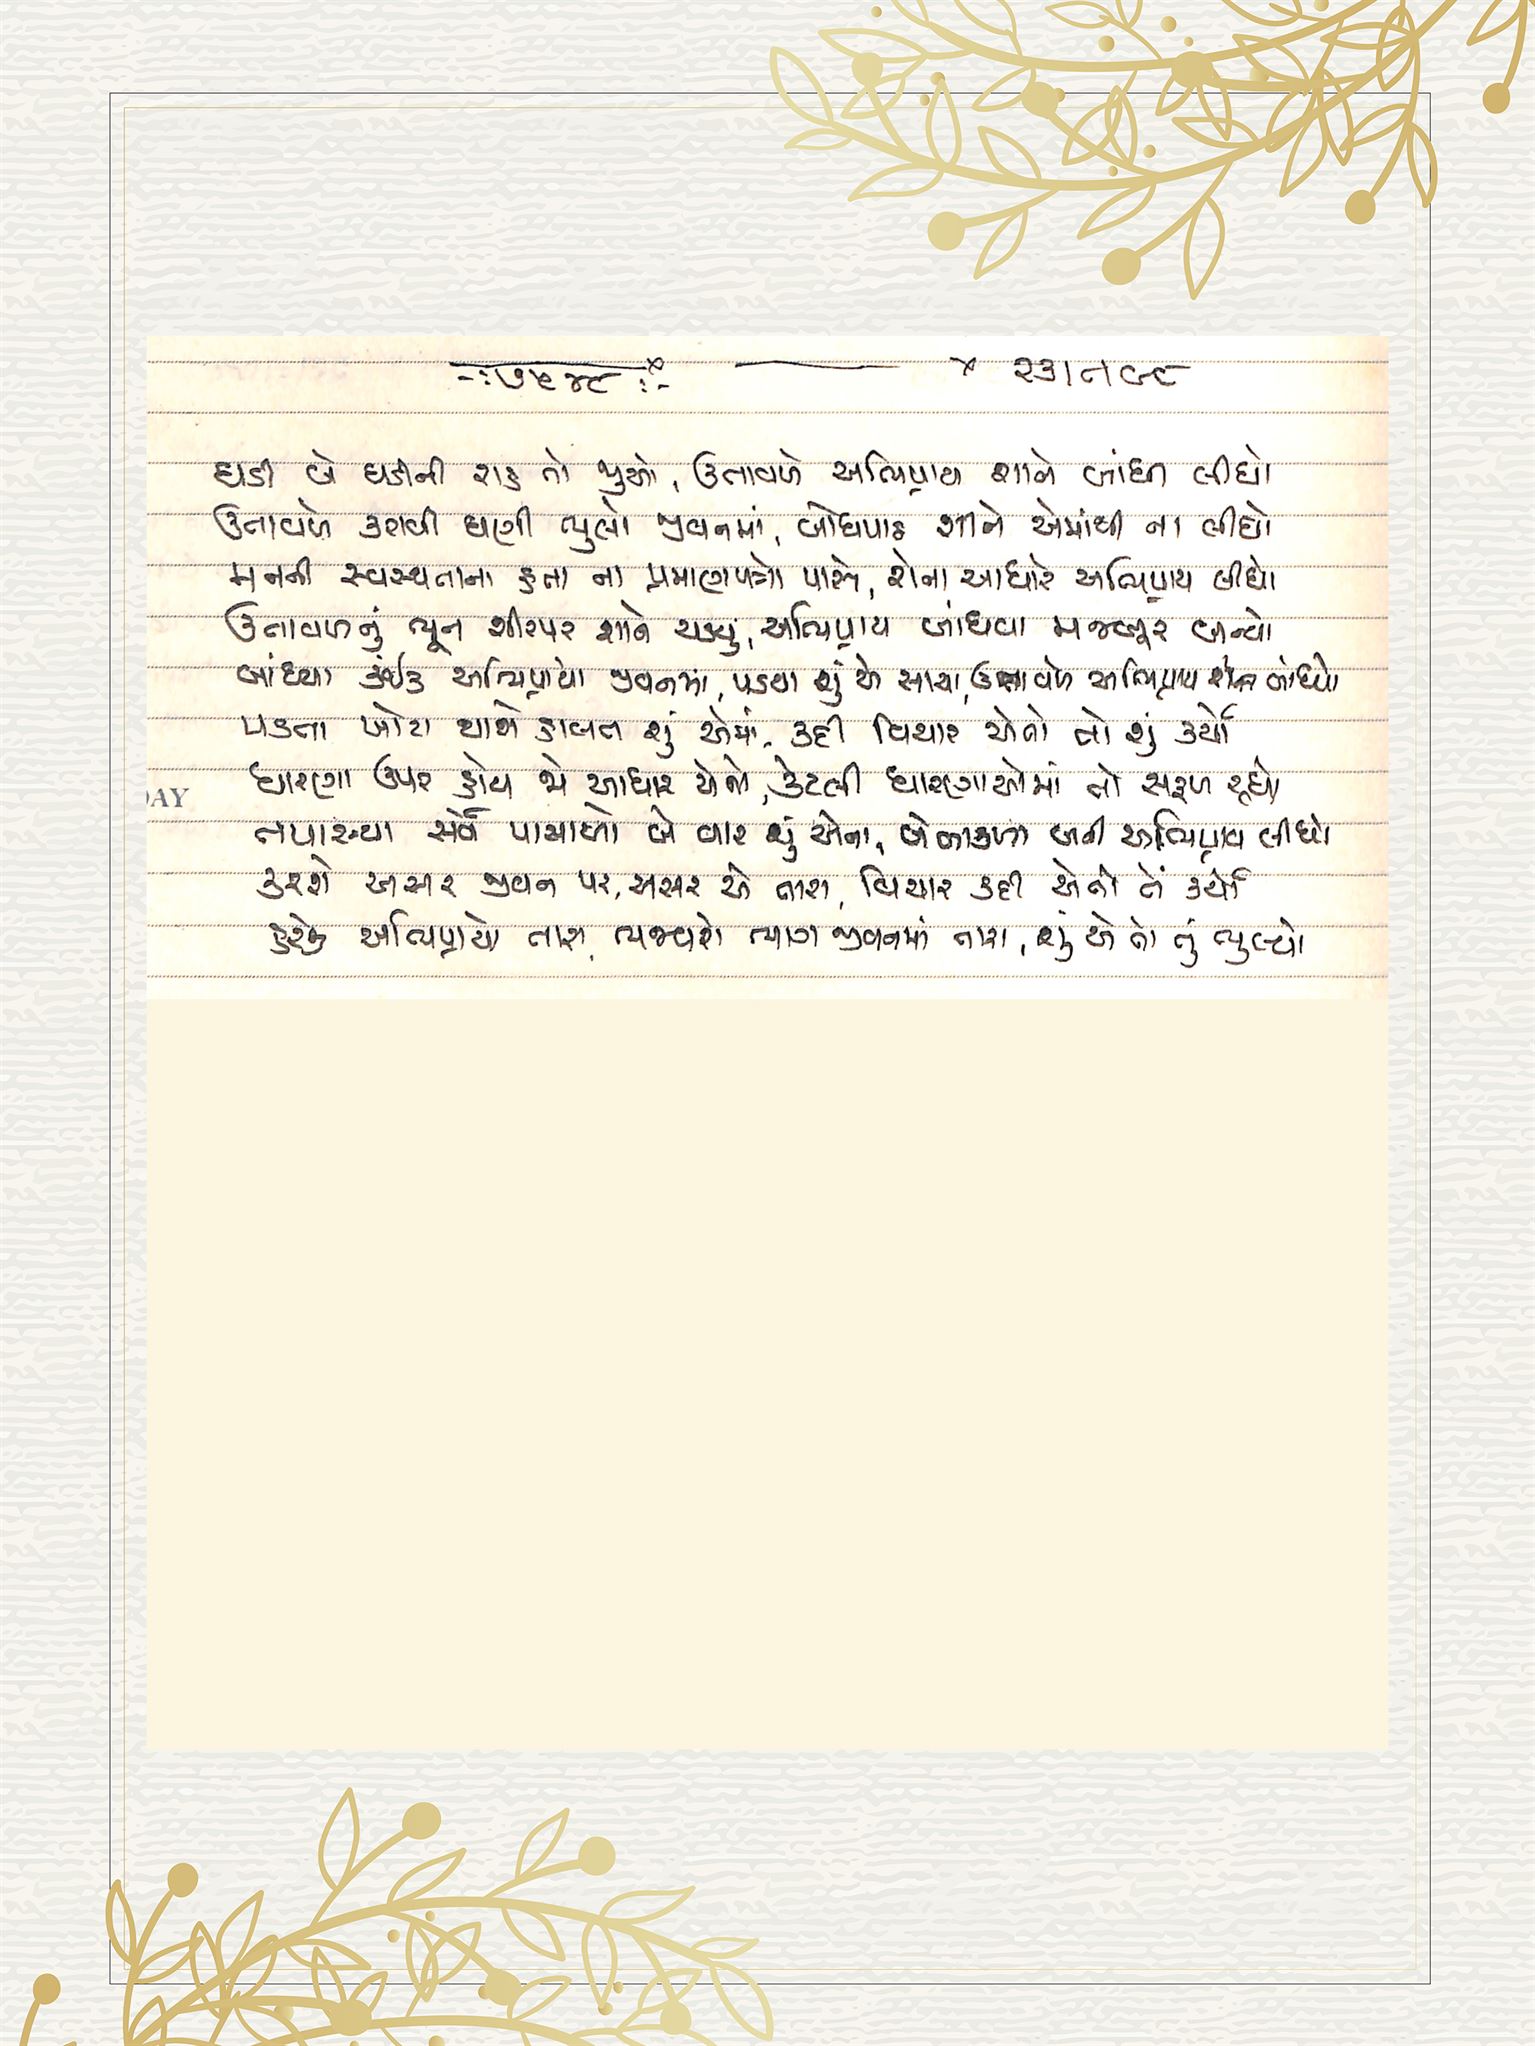 -: ૭૫૪૮ :-
ઘડી બે ઘડીની રાહ તો જુઓ, ઉતાવળે અભિપ્રાય શાને બાંધી લીધો
ઉતાવળે કરાવી ઘણી ભુલો જીવનમાં, બોધપાઠ શાને એમાંથી ના લીધો
મનની સ્વસ્થતાના હતા ના પ્રમાણપત્રો પાસે, શેના આધારે અભિપ્રાય લીધો
ઉતાવળનું ભૂત શીરપર શાને ચડ્યું, અભિપ્રાય બાંધવા મજબૂર બન્યો
બાંધ્યા કંઈક અભિપ્રાયો જીવનમાં, પડયા શું એ સાચા, ઉતાવળે અભિપ્રાય બાંધ્યો
પડતા ખોટા થાશે હાલત શું એમાં, કદી વિચાર એનો તો શું કર્યો
ધારણા ઉપર હોય જે આધાર એનો, કેટલી ધારણાઓમાં તો સફળ રહ્યો
તપાસ્યા સર્વે પાસાઓ બે વાર શું એના, બેબાકળા બની અભિપ્રાય લીધો
કરશે અસર જીવન પર, અસર એ તારા, વિચાર કદી એનો તેં કર્યો
હરેક અભિપ્રાયો તારા, ભજવશે ભાગ જીવનમાં તારા, શું એ તો તું ભુલ્યો
DAY